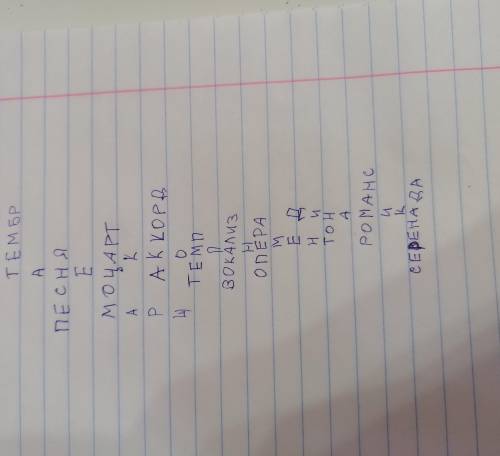 ТЕМБР
А
ПЕСНЯ
Е
МОЦАРТ
А К
Р АККОРД
Щ О
ТЕМП
П
ВОКАЛИЗ
Н
ОПЕРА
М
Е Д
Н И
ТОН
А
РОМАНС
И
К
СЕРЕНАДА